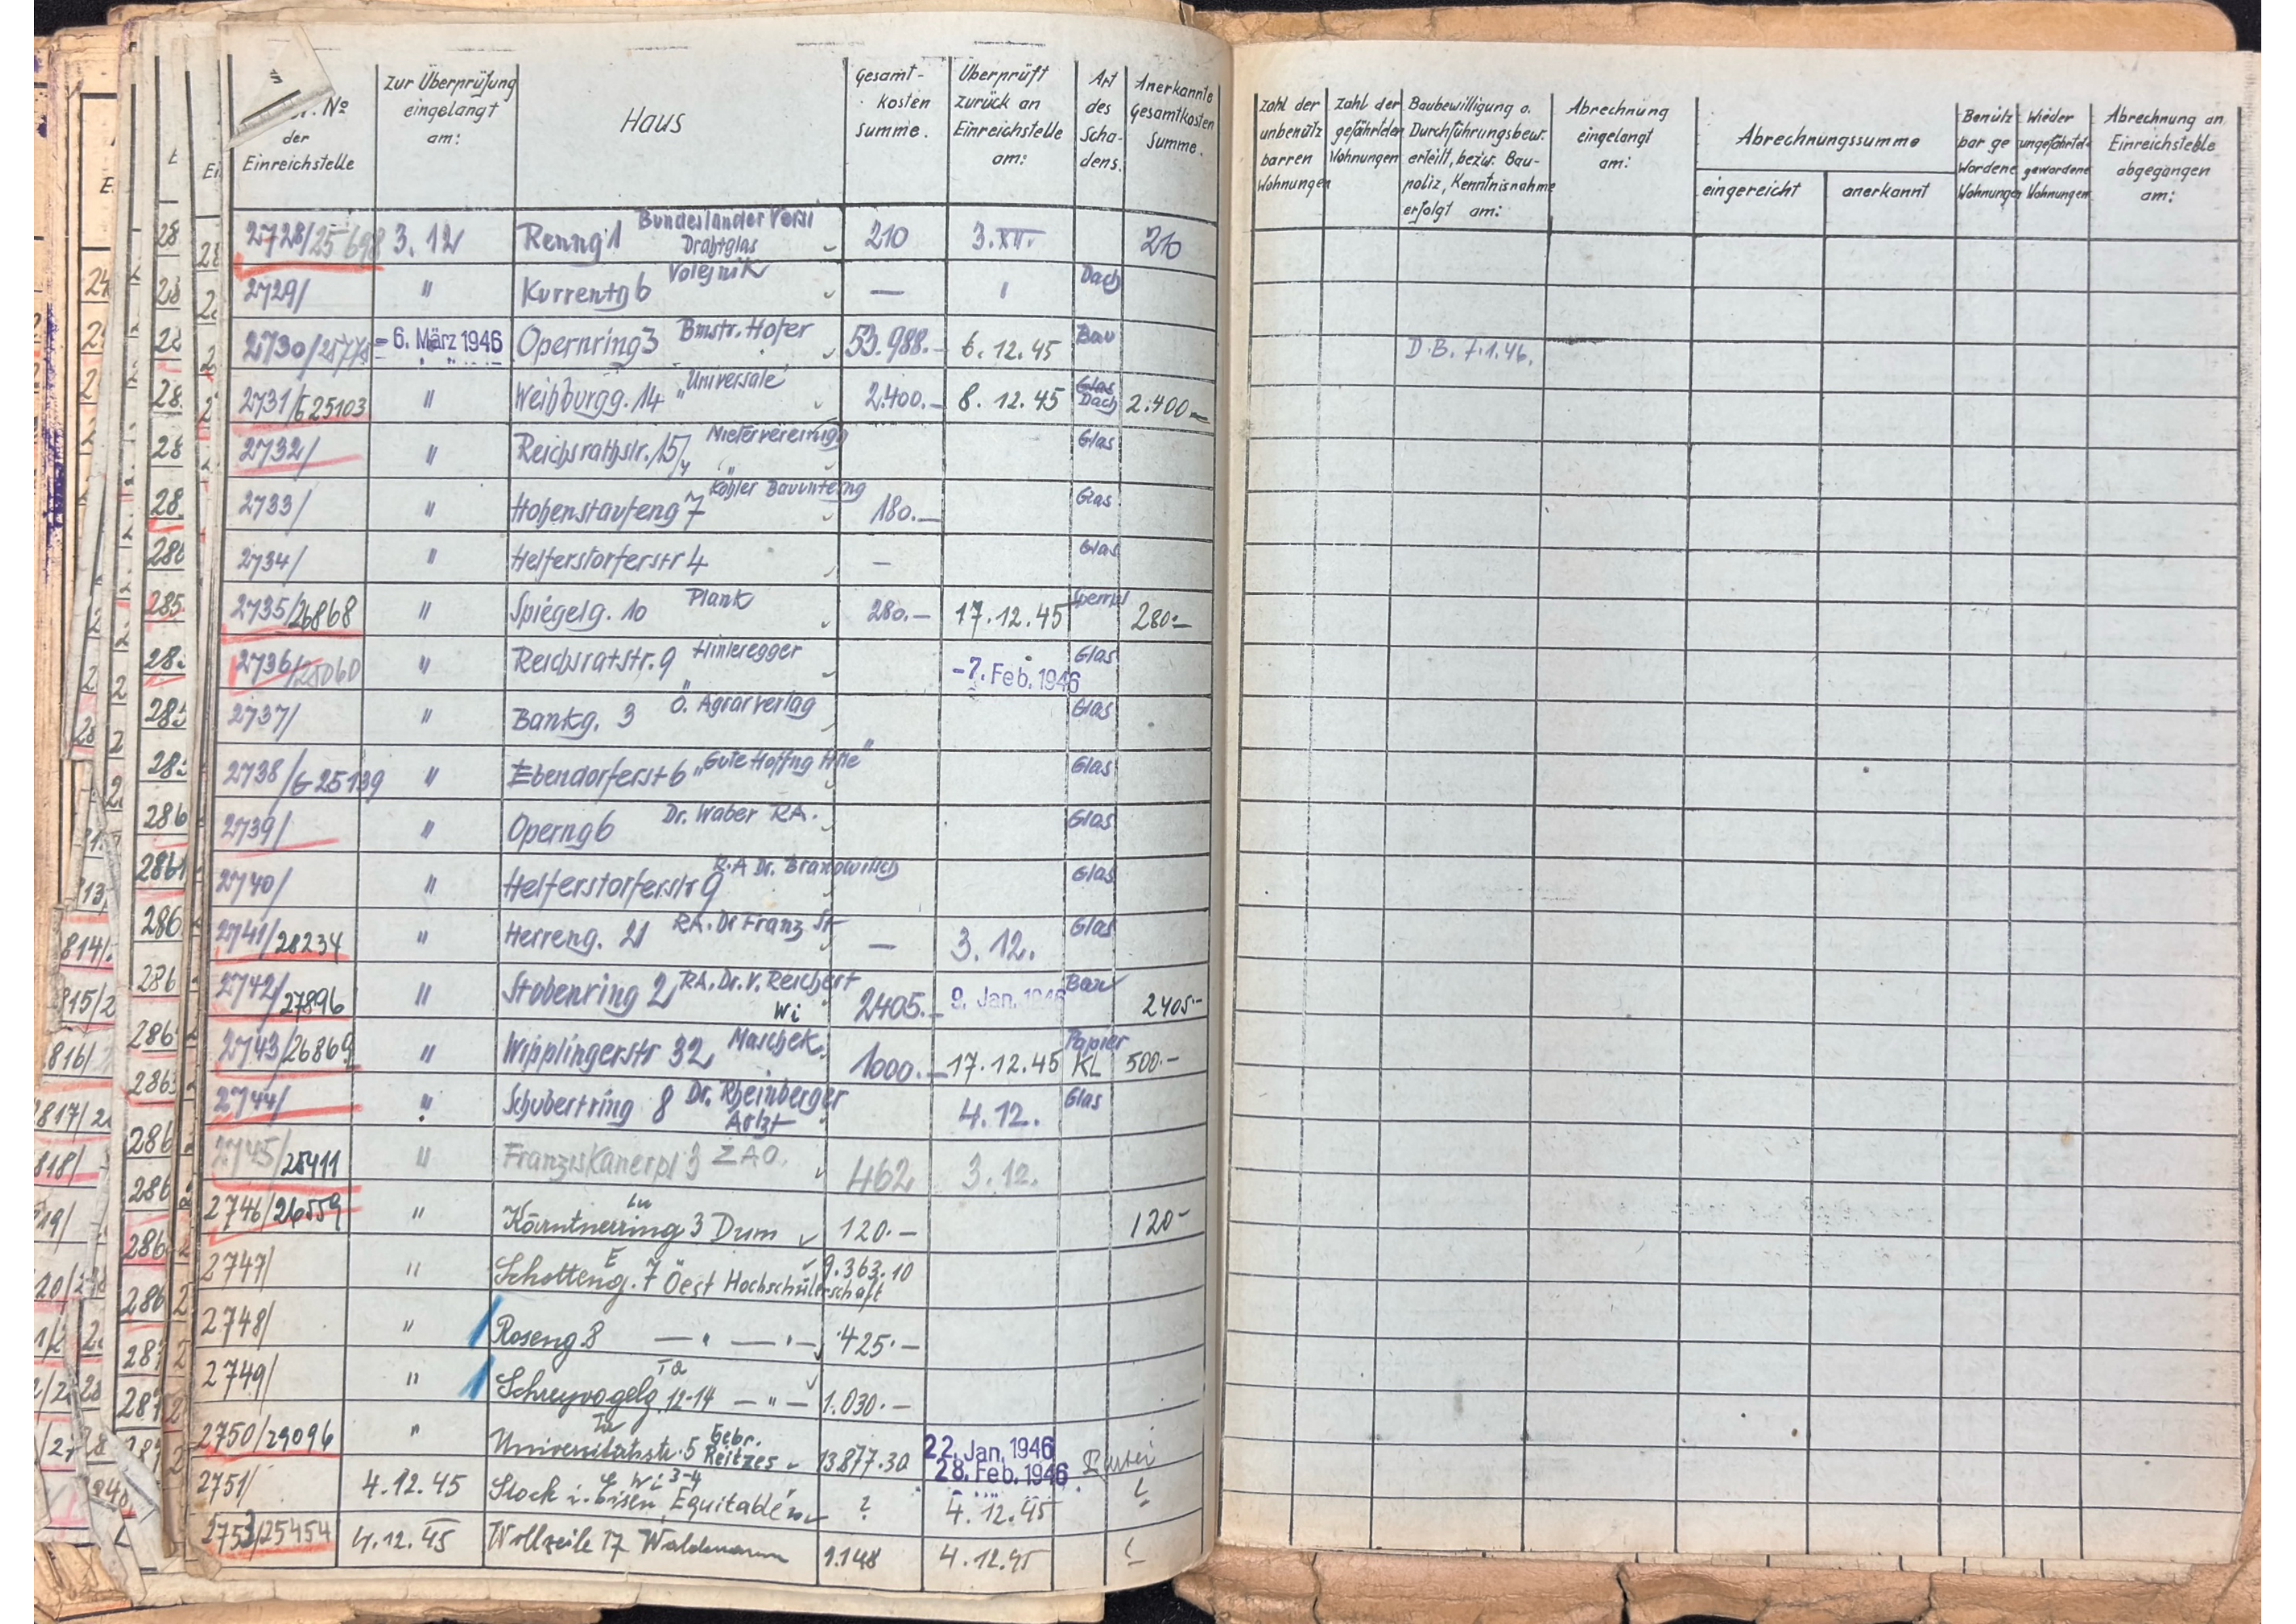 Nº der Einreichstelle | Zur Überprüfung eingelangt am: | Haus | Gesamt-kosten Summe. | Überprüft zurück an Einreichstelle am: | Art des Scha-dens. | Anerkannte Gesamtkosten Summe. | Zahl der unbenützbarren Wohnungen | Zahl der gefährdeten Wohnungen | Baubewilligung o. Durchführungsbew. erteilt, bezw. Bau-poliz, Kenntnisnahme erfolgt am: | Abrechnung eingelangt am: | Abrechnungssumme eingereicht | anerkannt | Benütz bar ge wordene Wohnungen | Wieder ungefährdet gewordene Wohnungen | Abrechnung an Einreichstelle abgegangen am:
2728/25698 3.12 Renng 1 Bundesländer Vers. Drahtglas 210 3.XII. 210
2729/ " Kurrentg 6 Volejnik — " Dach
2730/25778 - 6. März 1946 Opernring 3 Bmstr. Hofer 53.988.- 6.12.45 Bau D.B. 7.1.46.
2731/G25103 " Weihburgg. 14 "Universale" 2.400.- 8.12.45 Glas Dach 2.400.-
2732/ " Reichsrathstr. 15/4 Mietervereinigg Glas
2733/ " Hohenstaufeng 7 Köhler Bauunterng 180.- Glas
2734/ " Helferstorferstr 4 — Glas
2735/26868 " Spiegelg. 10 Plank 280.- 17.12.45 280.-
2736/25060 " Reichsratstr. 9 Hinteregger -7. Feb. 1946 Glas
2737/ " Bankg. 3 Ö. Agrarverlag Glas
2738/G25139 " Ebendorferst 6 "Gute Hoffng Htte" Glas
2739/ " Operng 6 Dr. Waber RA. Glas
2740/ " Helferstorferstr 9 R.A Dr. Glas
2741/28234 " Herreng. 21 RA. Dr Franz St — 3.12. Glas
2742/27896 " Stubenring 2 RA. Dr. V. Reichert Wi 2405.- 9. Jan. 1946 Bau 2405.-
2743/26869 " Wipplingerstr 32 Maschek 1000.- 17.12.45 Papier KL 500.-
2744/ " Schubertring 8 Dr. Rheinberger Arzt 4.12. Glas
2745/25411 " Franziskanerpl 3 ZAO. 462 3.12.
2746/26559 " Kärntnerring 3 Dum 120.- 120-
2747/ " Schotteng. 7 Öest Hochschülerschaft 9.363.10
2748/ " Roseng 8 — " — " — 425.-
2749/ " Schreyvogelg. 12-14 — " — 1.030.-
2750/29096 " Universitätsstr. 5 Gebr. Reitzes 13.877.30 22. Jan. 1946 28. Feb. 1946
2751/ 4.12.45 Stock i. Eisen 3-4 Equitable ? 4.12.45
2753/25454 4.12.45 Wollzeile 17 Waldmann 9.148 4.12.45